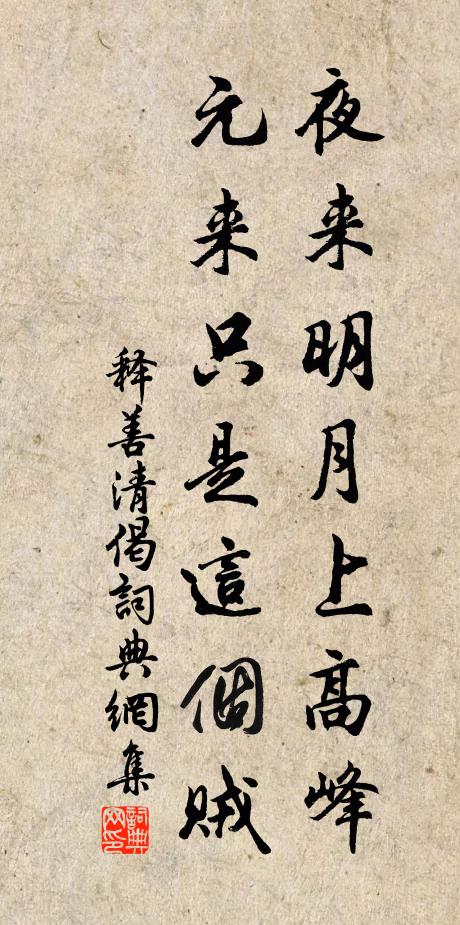 夜来明月上高峰
元来只是這個賊
释善清偈詞典網集
詞典网印